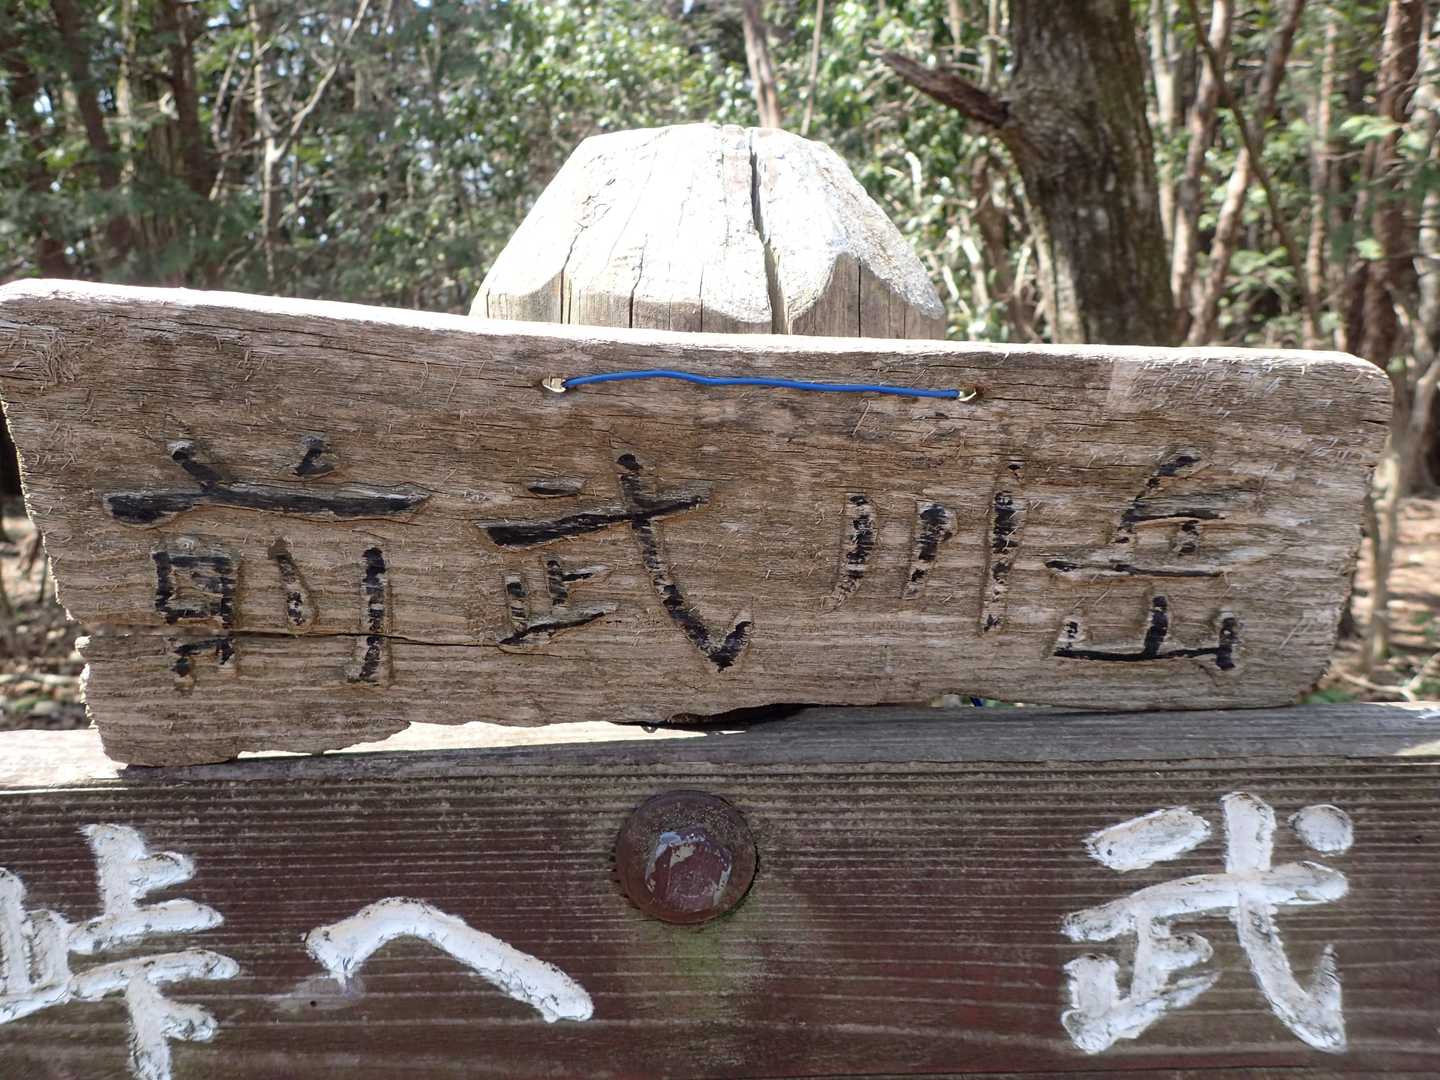 前武川岳
峠へ 武